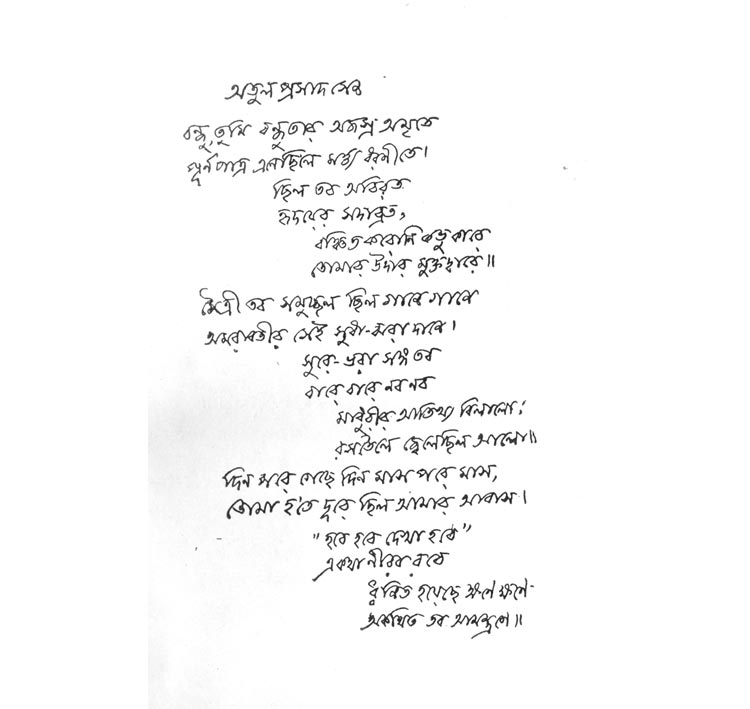 অতুলপ্রসাদ সেন
বন্ধু, তুমি বন্ধুতার অজস্র অমৃতে
পূর্ণপাত্র এনেছিলে মর্ত্য ধরণীতে।
ছিল তব অবিরত
হৃদয়ের সদাব্রত,
বঞ্চিত করোনি কভু কারে
তোমার উদার মুক্তদ্বারে॥
মৈত্রী তব সমুচ্ছল ছিল গানে গানে
অমরাবতীর সেই সুধা-ঝরা দানে।
সুরে-ভরা সঙ্গ তব
বারে বারে নব নব
মাধুরীর আতিথ্য বিলালো;
রসতৈলে জ্বেলেছিল আলো॥
দিন পরে গেছে দিন মাস পরে মাস,
তোমা হ'তে দূরে ছিল আমার আবাস।
"হবে হবে দেখা হবে"
একথা নীরব রবে
ধ্বনিত হয়েছে ক্ষণে ক্ষণে-
অকথিত তব আমন্ত্রণে॥